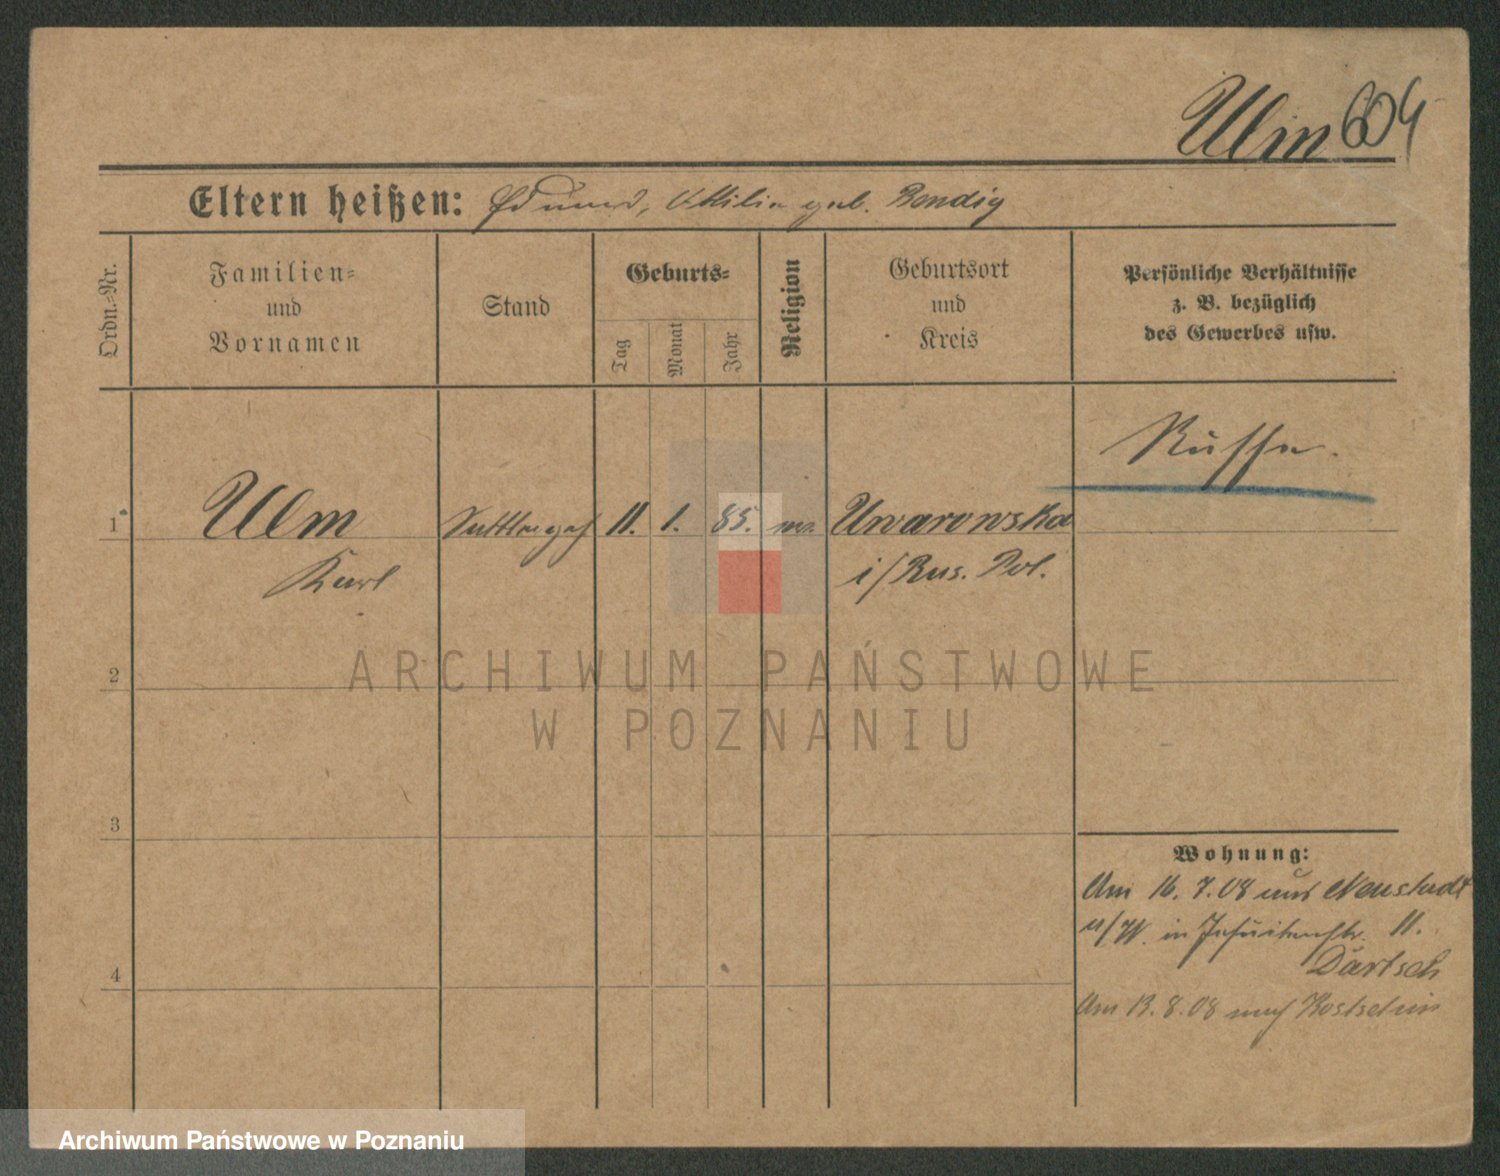 Ulm 604
Eltern heißen: Eduard, Ottilie geb. Bendig
Ordn.-Nr.
Familien-
und
Vornamen
Stand
Geburts-
Tag
Monat
Jahr
Religion
Geburtsort
und
Kreis
Persönliche Verhältnisse
z. B. bezüglich
des Gewerbes usw.
Russe.
1 Ulm 11. 1. 85. Uwarowska
Karl i/Rus. Pol.
ARCHIWUM PAŃSTWOWE
W POZNANIU
2
3
4
Wohnung:
Am 16.7.08 aus Neustadt
a/W. in Jesuitenstr. 11.
Dartsch
Am 13.8.08 nach
Archiwum Państwowe w Poznaniu